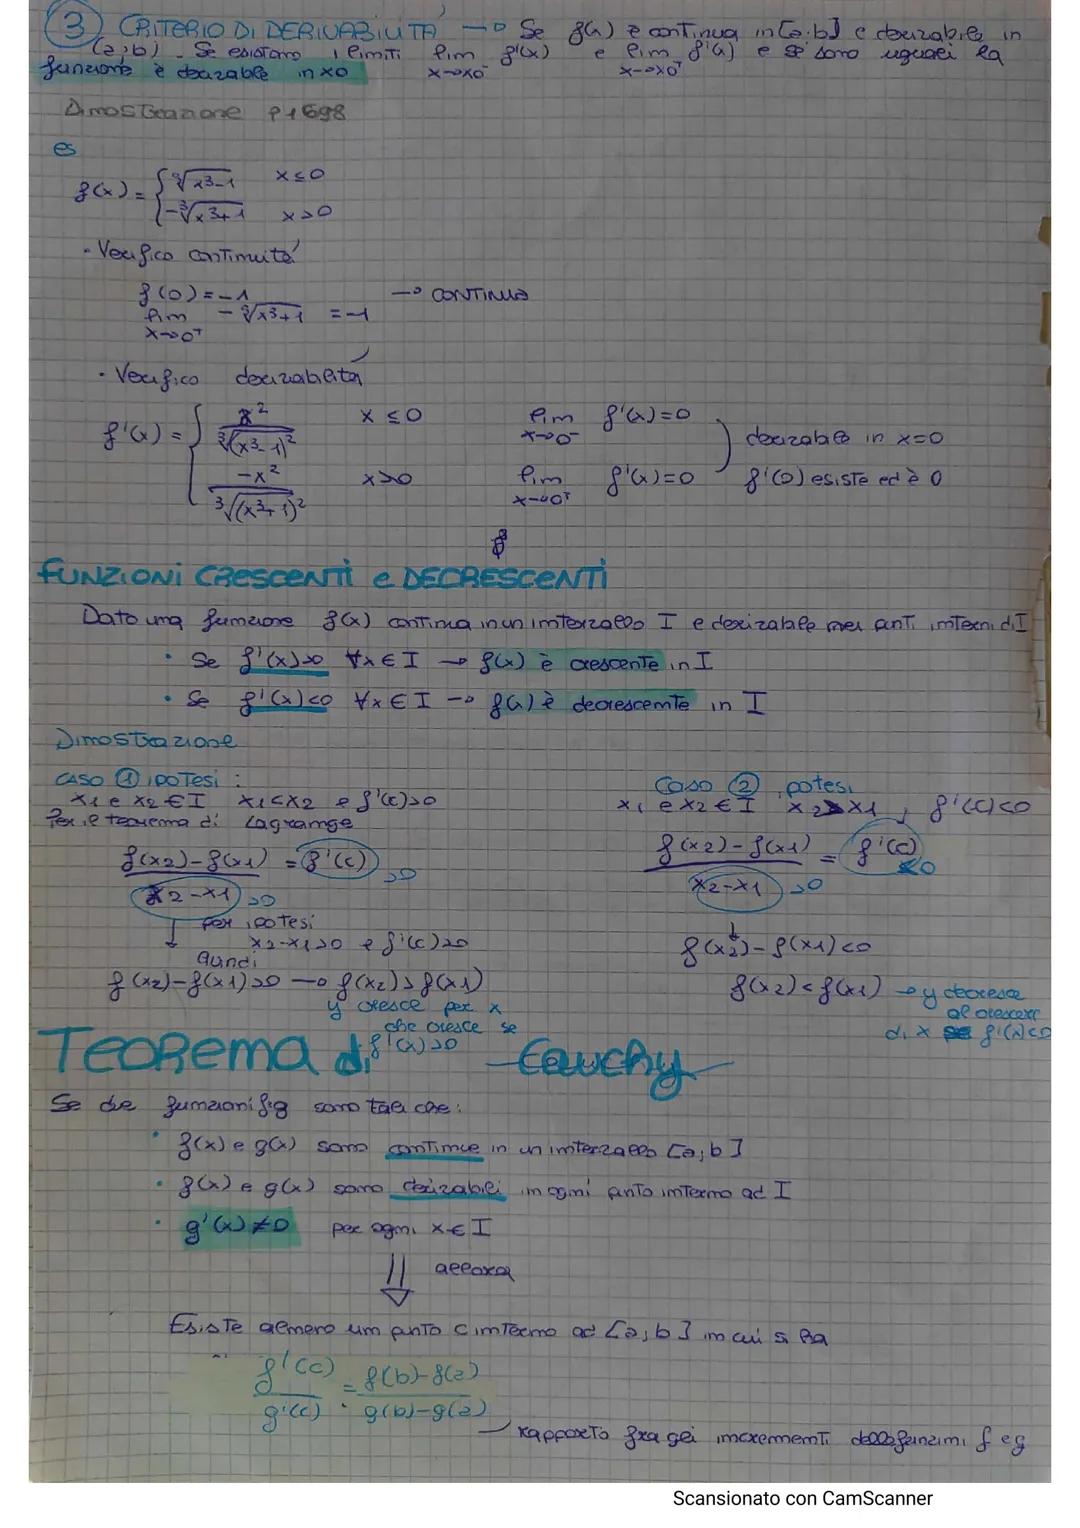 ③ CRITERIO DI DERIVABILITÀ → Se f(x) è continua in [a;b] e derivabile in
(a;b). Se esistono i limiti lim f'(x) e lim f'(x) e se sono uguali la
x→x0⁻ x→x0⁺
funzione è derivabile in x0
Dimostrazione p1698
es
f(x) = { ∛(x³-1) x≤0
-∛(x³+1) x>0
• Verifico continuità
f(0) = -1 → CONTINUA
lim -∛(x³+1) = -1
x→0⁺
• Verifico derivabilità
f'(x) = { x² / ∛(x³-1)² x≤0 lim f'(x)=0 derivabile in x=0
x→0⁻
-x² / ∛(x³+1)² x>0 lim f'(x)=0 f'(0) esiste ed è 0
x→0⁺
FUNZIONI CRESCENTI e DECRESCENTI
Dato una funzione f(x) continua in un intervallo I e derivabile nei punti interni di I
• Se f'(x)>0 ∀x∈I → f(x) è crescente in I
• Se f'(x)<0 ∀x∈I → f(x) è decrescente in I
Dimostrazione
CASO ① ipotesi :
x1 e x2 ∈ I x1<x2 e f'(c)>0
Per il teorema di Lagrange
f(x2)-f(x1) / x2-x1 = f'(c) >0
>0
per ipotesi
x2-x1>0 e f'(c)>0
Quindi
f(x2)-f(x1)>0 → f(x2)>f(x1)
y cresce per x
che cresce se
f'(x)>0
Caso ② ipotesi
x1 e x2 ∈ I x2>x1, f'(c)<0
f(x2)-f(x1) / x2-x1 = f'(c) <0
>0
f(x2)-f(x1)<0
f(x2)<f(x1) → y decresce
al crescere
di x se f'(x)<0
Teorema di Cauchy
Se due funzioni f;g sono tali che:
• f(x) e g(x) sono continue in un intervallo [a;b]
• f(x) e g(x) sono derivabili in ogni punto interno ad I
• g'(x)≠0 per ogni x∈I
⇓ allora
Esiste almeno un punto c interno ad [a;b] in cui si ha
f'(c) / g'(c) = f(b)-f(a) / g(b)-g(a)
rapporto fra gli incrementi delle funzioni f e g
Scansionato con CamScanner